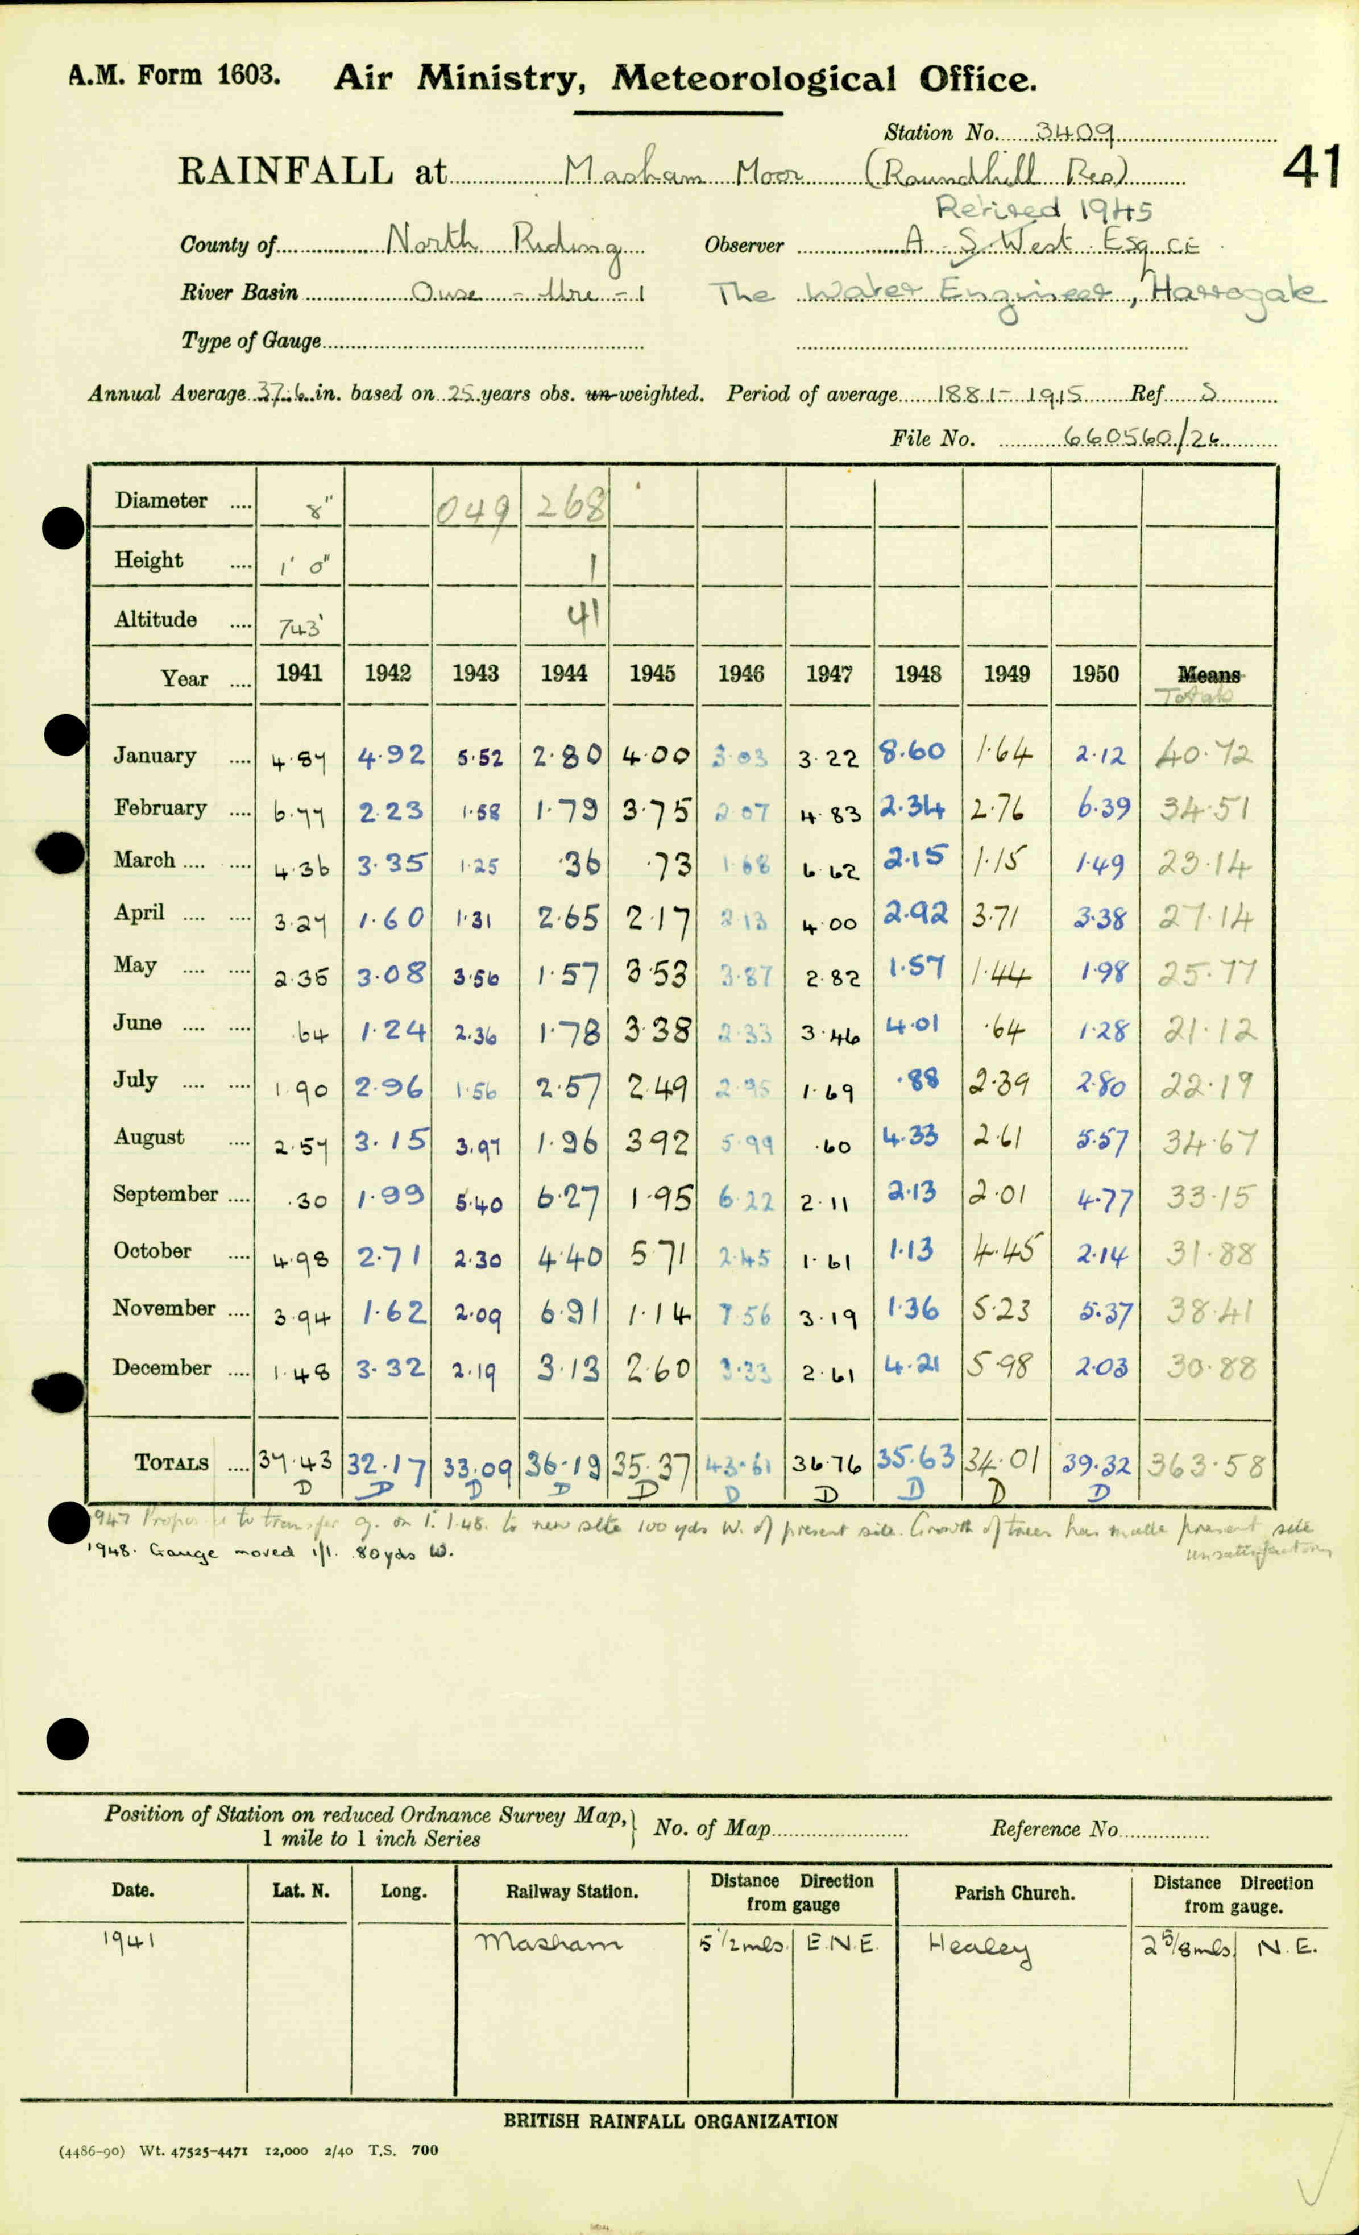 A.M. Form 1603. Air Ministry, Meteorological Office.
Station No. 3409
41
RAINFALL at Masham Moor (Roundhill Res)
Retired 1945
County of North Riding Observer A. S. West Esq CE
River Basin Ouse - Ure - 1 The Water Engineer, Harrogate
Type of Gauge
Annual Average 37.6 in. based on 25 years obs. un-weighted. Period of average 1881-1915 Ref S
File No. 660560/26
Diameter .... 8" 049 268
Height .... 1' 0" 1
Altitude .... 743' 41
Year .... 1941 1942 1943 1944 1945 1946 1947 1948 1949 1950 Means
Totals
January .... 4.87 4.92 5.52 2.80 4.00 3.03 3.22 8.60 1.64 2.12 40.72
February .... 6.77 2.23 1.58 1.79 3.75 2.07 4.83 2.34 2.76 6.39 34.51
March .... .... 4.36 3.35 1.25 .36 .73 1.68 6.62 2.15 1.15 1.49 23.14
April .... .... 3.27 1.60 1.31 2.65 2.17 2.13 4.00 2.92 3.71 3.38 27.14
May .... .... 2.35 3.08 3.56 1.57 3.53 3.87 2.82 1.57 1.44 1.98 25.77
June .... .... .64 1.24 2.36 1.78 3.38 2.33 3.46 4.01 .64 1.28 21.12
July .... .... 1.90 2.96 1.56 2.57 2.49 2.95 1.69 .88 2.39 2.80 22.19
August .... 2.57 3.15 3.97 1.96 3.92 5.99 .60 4.33 2.61 5.57 34.67
September .... .30 1.99 5.40 6.27 1.95 6.22 2.11 2.13 2.01 4.77 33.15
October .... 4.98 2.71 2.30 4.40 5.71 2.45 1.61 1.13 4.45 2.14 31.88
November .... 3.94 1.62 2.09 6.91 1.14 7.56 3.19 1.36 5.23 5.37 38.41
December .... 1.48 3.32 2.19 3.13 2.60 3.33 2.61 4.21 5.98 2.03 30.88
TOTALS .... 37.43 32.17 33.09 36.19 35.37 43.61 36.76 35.63 34.01 39.32 363.58
D D D D D D D D D D
1947 to transfer g. on 1.1.48. to new site 100 yds W. of present site. Growth of trees has made present site
unsatisfactory
1948. Gauge moved 1/1. 80 yds W.
Position of Station on reduced Ordnance Survey Map, } No. of Map Reference No.
1 mile to 1 inch Series
Date. Lat. N. Long. Railway Station. Distance Direction from gauge Parish Church. Distance Direction from gauge.
1941 Masham 5 1/2 mls. E.N.E. Healey 2 5/8 mls N.E.
BRITISH RAINFALL ORGANIZATION
(4486-90) Wt. 47525-4471 12,000 2/40 T.S. 700